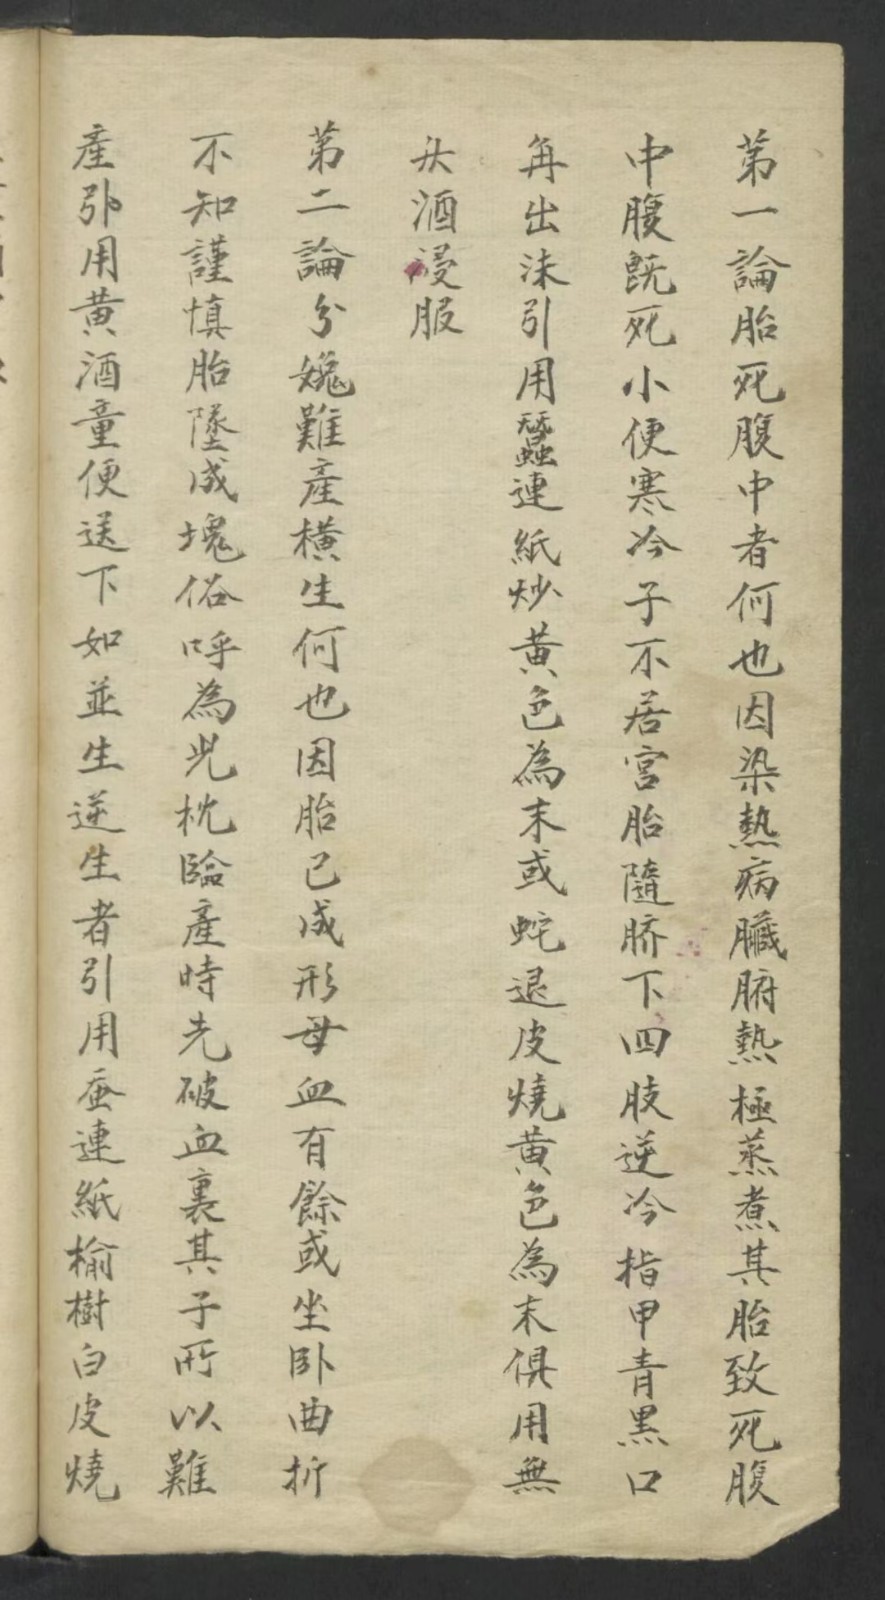 第一論胎死腹中者何也因染熱病臟腑熱極蒸煮其胎致死腹
中腹既死小便寒冷子不居宮胎隨臍下四肢逆冷指甲青黑口
再出沫引用蠶連紙炒黃色為末或蛇退皮燒黃色為末俱用無
灰酒浸服
第二論分娩難產橫生何也因胎已成形母血有餘或坐卧曲折
不知謹慎胎墜成塊俗呼為兒枕臨產時先破血裏其子所以難
產引用黃酒童便送下如並生逆生者引用蚕連紙榆樹白皮燒